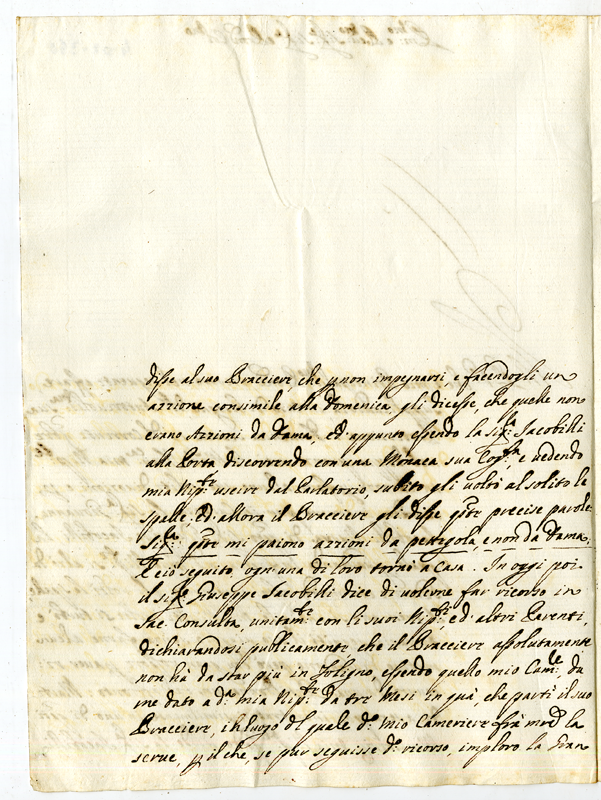 disse al suo Bracciere, che p non impegnarsi, e facendogli un
azzione consimile alla Domenica, gli dicesse, che quelle non
erano Azzioni da Dama, Ed appunto essendo la Sig.ra Jacobilli
alla Porta, discorrendo con una Monaca sua Cog.ta, e vedendo
mia Nip.te uscire dal Parlatorio, subito gli voltò al solito le
spalle, Ed allora il Bracciere gli disse q.ste precise parole
Sig.ra q.ste mi paiono azzioni da pettegola, e non da Dama;
E ciò seguito, ogn'una di loro tornò a Casa. In oggi poi
il Sig.r Giuseppe Jacobilli dice di volerne far ricorso in
Sac. Consulta, unitam.te con li suoi Nip.ti, ed altri Parenti,
dichiarandosi publicamente che il Bracciere assolutamente
non hà da star più in Foligno, essendo quello mio Cam.re, da
me dato a d.a mia Nip.te da tre Mesi in quà, che partì il suo
Bracciere, in luogo del quale d.o mio Cameriere la
serve, p il che, se pur seguisse d.o ricorso, imploro la gran